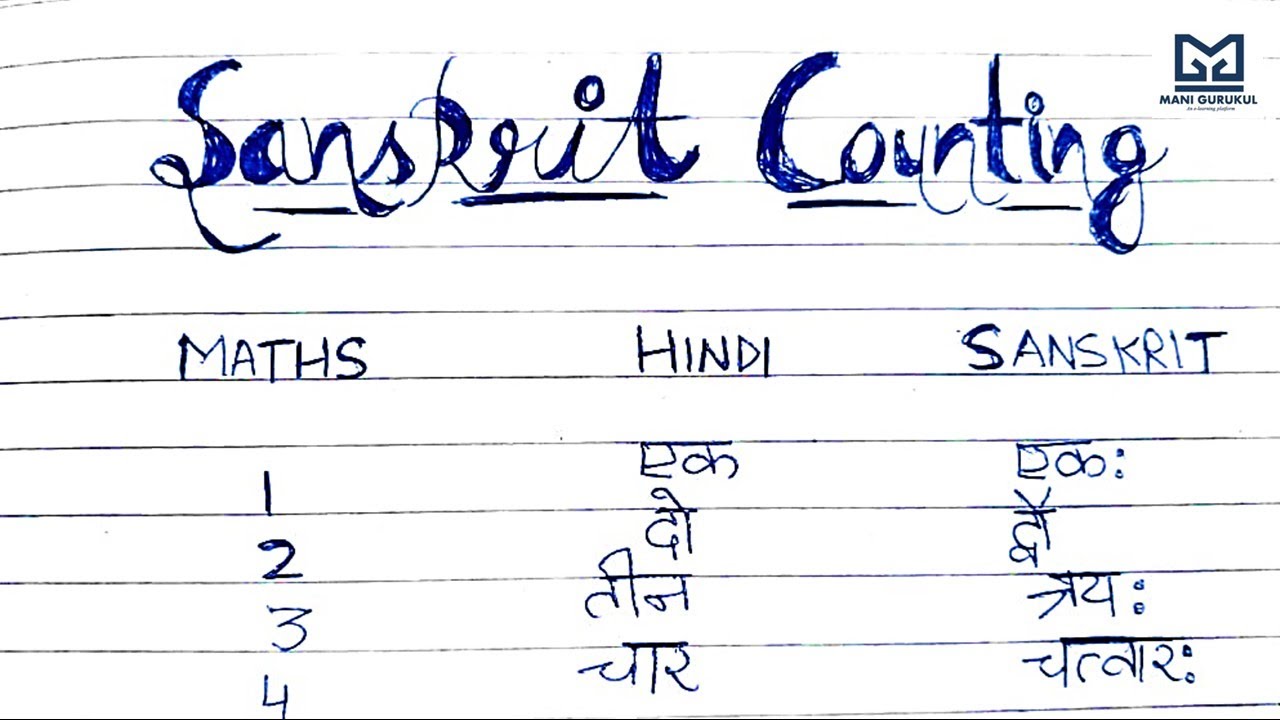 MANI GURUKUL
An e-learning platform
Sanskrit Counting
MATHS HINDI SANSKRIT
1 एक एकः
2 दो द्वौ
3 तीन त्रयः
4 चार चत्वारः